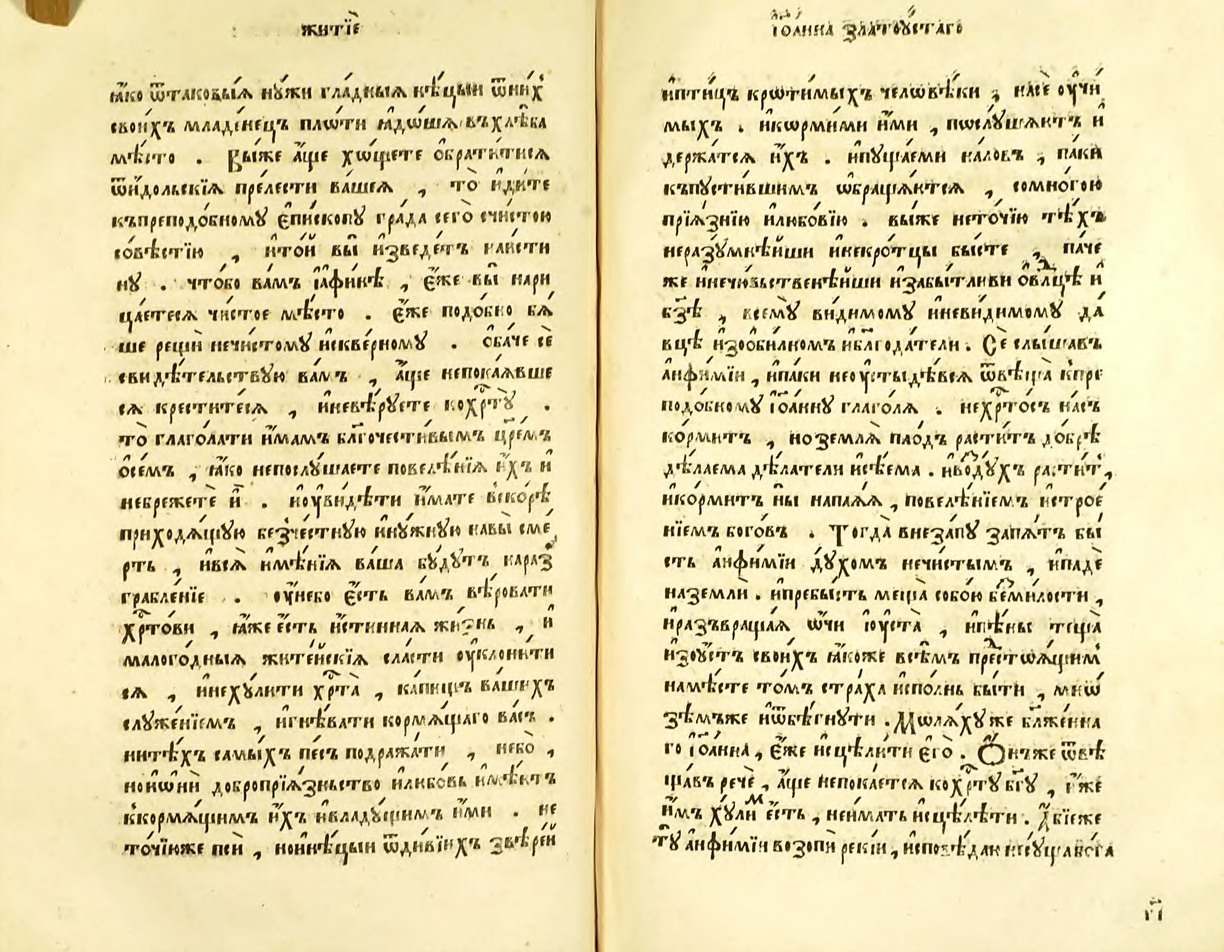 житїѐ
ꙗ҆́ко ѿтаковы́ѧ нꙋ́жи гла́дныѧ нѣ́цыи ѿни́хъ
свои́хъ младе́нецъ пло́ти ꙗ҆до́шѧ въхлѣ́ба
мѣ́сто . Вы́же а҆́ще хо́щете ѻ҆брати́тисѧ
ѿи҆́дольскїѧ пре́лести ва́шеѧ , то̀ и҆ди́те
къпреподо́бному є҆пи́скопу гра́да сего̀ счи́стою
со́вѣстїю , и҆то́й вы̀ и҆зведе́тъ наи́сти
ну . что́бо ва́мъ і҆а́фикѣ , є҆́же вы̀ нари
ца́етесѧ чи́стое мѣ́сто . є҆́же подо́бно бѧ́
ше рещѝ нечи́стому и҆скве́рному . ѻ҆ба́че сѐ
свидѣ́тельствую ва́мъ , а҆́ще непока́ѧвше
сѧ крести́тесѧ , и҆невѣ́руете кохрⷭ҇тꙋ̀ .
то̀ глаго́лати и҆́мамъ бл҃гочести́вымъ цр҃е́мъ
ѻ҆се́мъ , ꙗ҆́ко непослу́шаете повелѣ́нїѧ и҆́хъ и҆
небреже́те и҆̀ . и҆ᲂу҆ви́дѣти и҆́мате вско́рѣ
приходѧ́щꙋю безче́стнꙋю и҆нꙋ́жнꙋю навы̀ сме́
рть , и҆всѧ̀ и҆мѣ́нїѧ ва́ша бꙋ́дꙋтъ нараз
грабле́нїе . ᲂу҆не́бо є҆́сть ва́мъ вѣ́ровати
хрⷭ҇то́ви , ꙗ҆́же є҆́сть и҆́стинная жи́знь , и҆
малого́дныѧ жите́йскїѧ сла́сти ᲂу҆клони́ти
сѧ , и҆нехꙋ́лити хрⷭ҇та̀ , ка́пищъ ва́шихъ
слꙋже́нїемъ , и҆гнѣ́вати кормѧ́щаго ва́съ .
нитѣ́хъ самы́хъ пе́съ подража́ти , не́бо ,
но́иѡнѝ доброприѧ́зньство и҆любо́вь и҆мѣ́ютъ
ккормѧ́щимъ и҆́хъ и҆владꙋ́щимъ и҆́ми . не
то́чїюже псѝ , но́инѣ́цыи ѿди́вїихъ звѣре́й
і҆ѡа́нна златоꙋ́стаго
и҆пти́цъ кроти́мыхъ человѣ́ки , насѐ ᲂу҆чи́
мыхъ . и҆кормими и҆́ми , послꙋ́шаютъ и҆
держа́тсѧ и҆́хъ . и҆пꙋща́еми на́ловъ , па́ки
къпꙋсти́вшимъ ѡ҆браща́ютсѧ , сомно́гою
прїѧ́знїю и҆любо́вїю . вы́же нето́чїю тѣ́хъ
неразꙋ́мнѣйши и҆некро́тцы бы́сте , па́че
же и҆нечю́вьственѣйши и҆забы́тливи ѻ҆влⷣцѣ и҆
бз҃ѣ , всемꙋ̀ ви́димомꙋ и҆неви́димомꙋ да́
вцѣ и҆зоби́лномъ и҆бл҃года́тели . Сѐ слы́шавъ
анфи́мїи , и҆па́ки неᲂу҆сты́дѣвсѧ ѿвѣща̀ кпре
подо́бному і҆ѡа́нну глаго́лѧ . нехрⷭ҇то́съ на́съ
ко́рмитъ , но землѧ̀ пло́дъ расти́тъ до́брѣ
дѣ́лаема дѣ́латели и҆сѣ́ема . и҆во́здꙋхъ расти́тъ,
и҆ко́рмитъ ны̀ напаѧ́ѧ , повелѣ́нїемъ и҆строе́
нїемъ бого́въ . Тогда̀ внеза́пꙋ запѧ́тъ бы́
сть анфи́мїи дꙋ́хомъ нечи́стымъ , и҆падѐ
наземлѝ . и҆пребы́сть меща̀ собо́ю безми́лости ,
и҆развраща́ѧ ѻ҆́чи і҆ᲂу҆ста̀ , и҆пѣ́ны теща̀
и҆зоꙋ́стъ свои́хъ ꙗ҆́коже всѣ́мъ престоѧ́щимъ
намѣ́сте то́мъ стра́ха и҆спо́лнь бы́ти , мнѡ́
зѣмъже и҆ѿбѣ́гнꙋти . Молѧ́хꙋ же бл҃же́нна
го і҆ѡа́нна , є҆́же и҆сцѣли́ти є҆го̀ . Ѻ҆нъже ѿвѣ
ща́въ речѐ , а҆́ще непока́етсѧ кохрⷭ҇тꙋ̀ бг҃ꙋ , є҆го́же
и҆́мъ хꙋ́лилъ є҆́сть , неи́мать и҆сцѣлѣ́ти . А҆́бїеже
тꙋ̀ анфи́мїи возопѝ рекі́й , и҆сповѣ́даю
г҃і